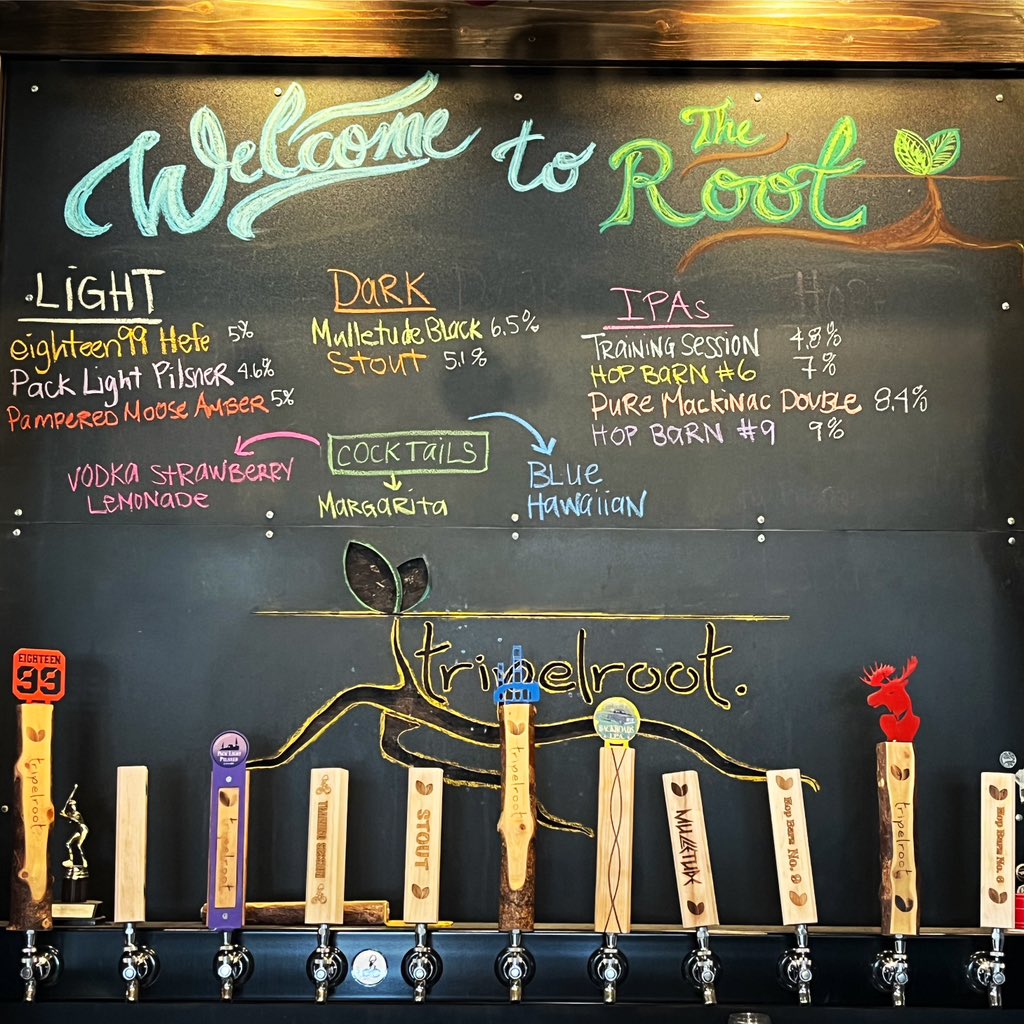 Welcome to The Root
LiGHT
eighteen99 Hefe 5%
Pack Light Pilsner 4.6%
Pampered Moose Amber 5%
DaRK
Mulletude Black 6.5%
Stout 5.1%
IPAs
TRaiNiNG SESSiON 4.8%
HOP BaRN #6 7%
PuRe Mackinac Double 8.4%
HOP BaRN #9 9%
COCKTaiLS
VODKa STRaWBERRY
LEMONADE
MaRGaRiTa
BLUE
Hawaiian
tripelroot.
EIGHTEEN
99
tripelroot
PACK LIGHT
PILSNER
tripelroot
TRAINING SESSION
STOUT
tripelroot
BACKROADS
I.P.A.
MULLETUDE
Hop Barn No. 9
tripelroot
Hop Barn No. 6